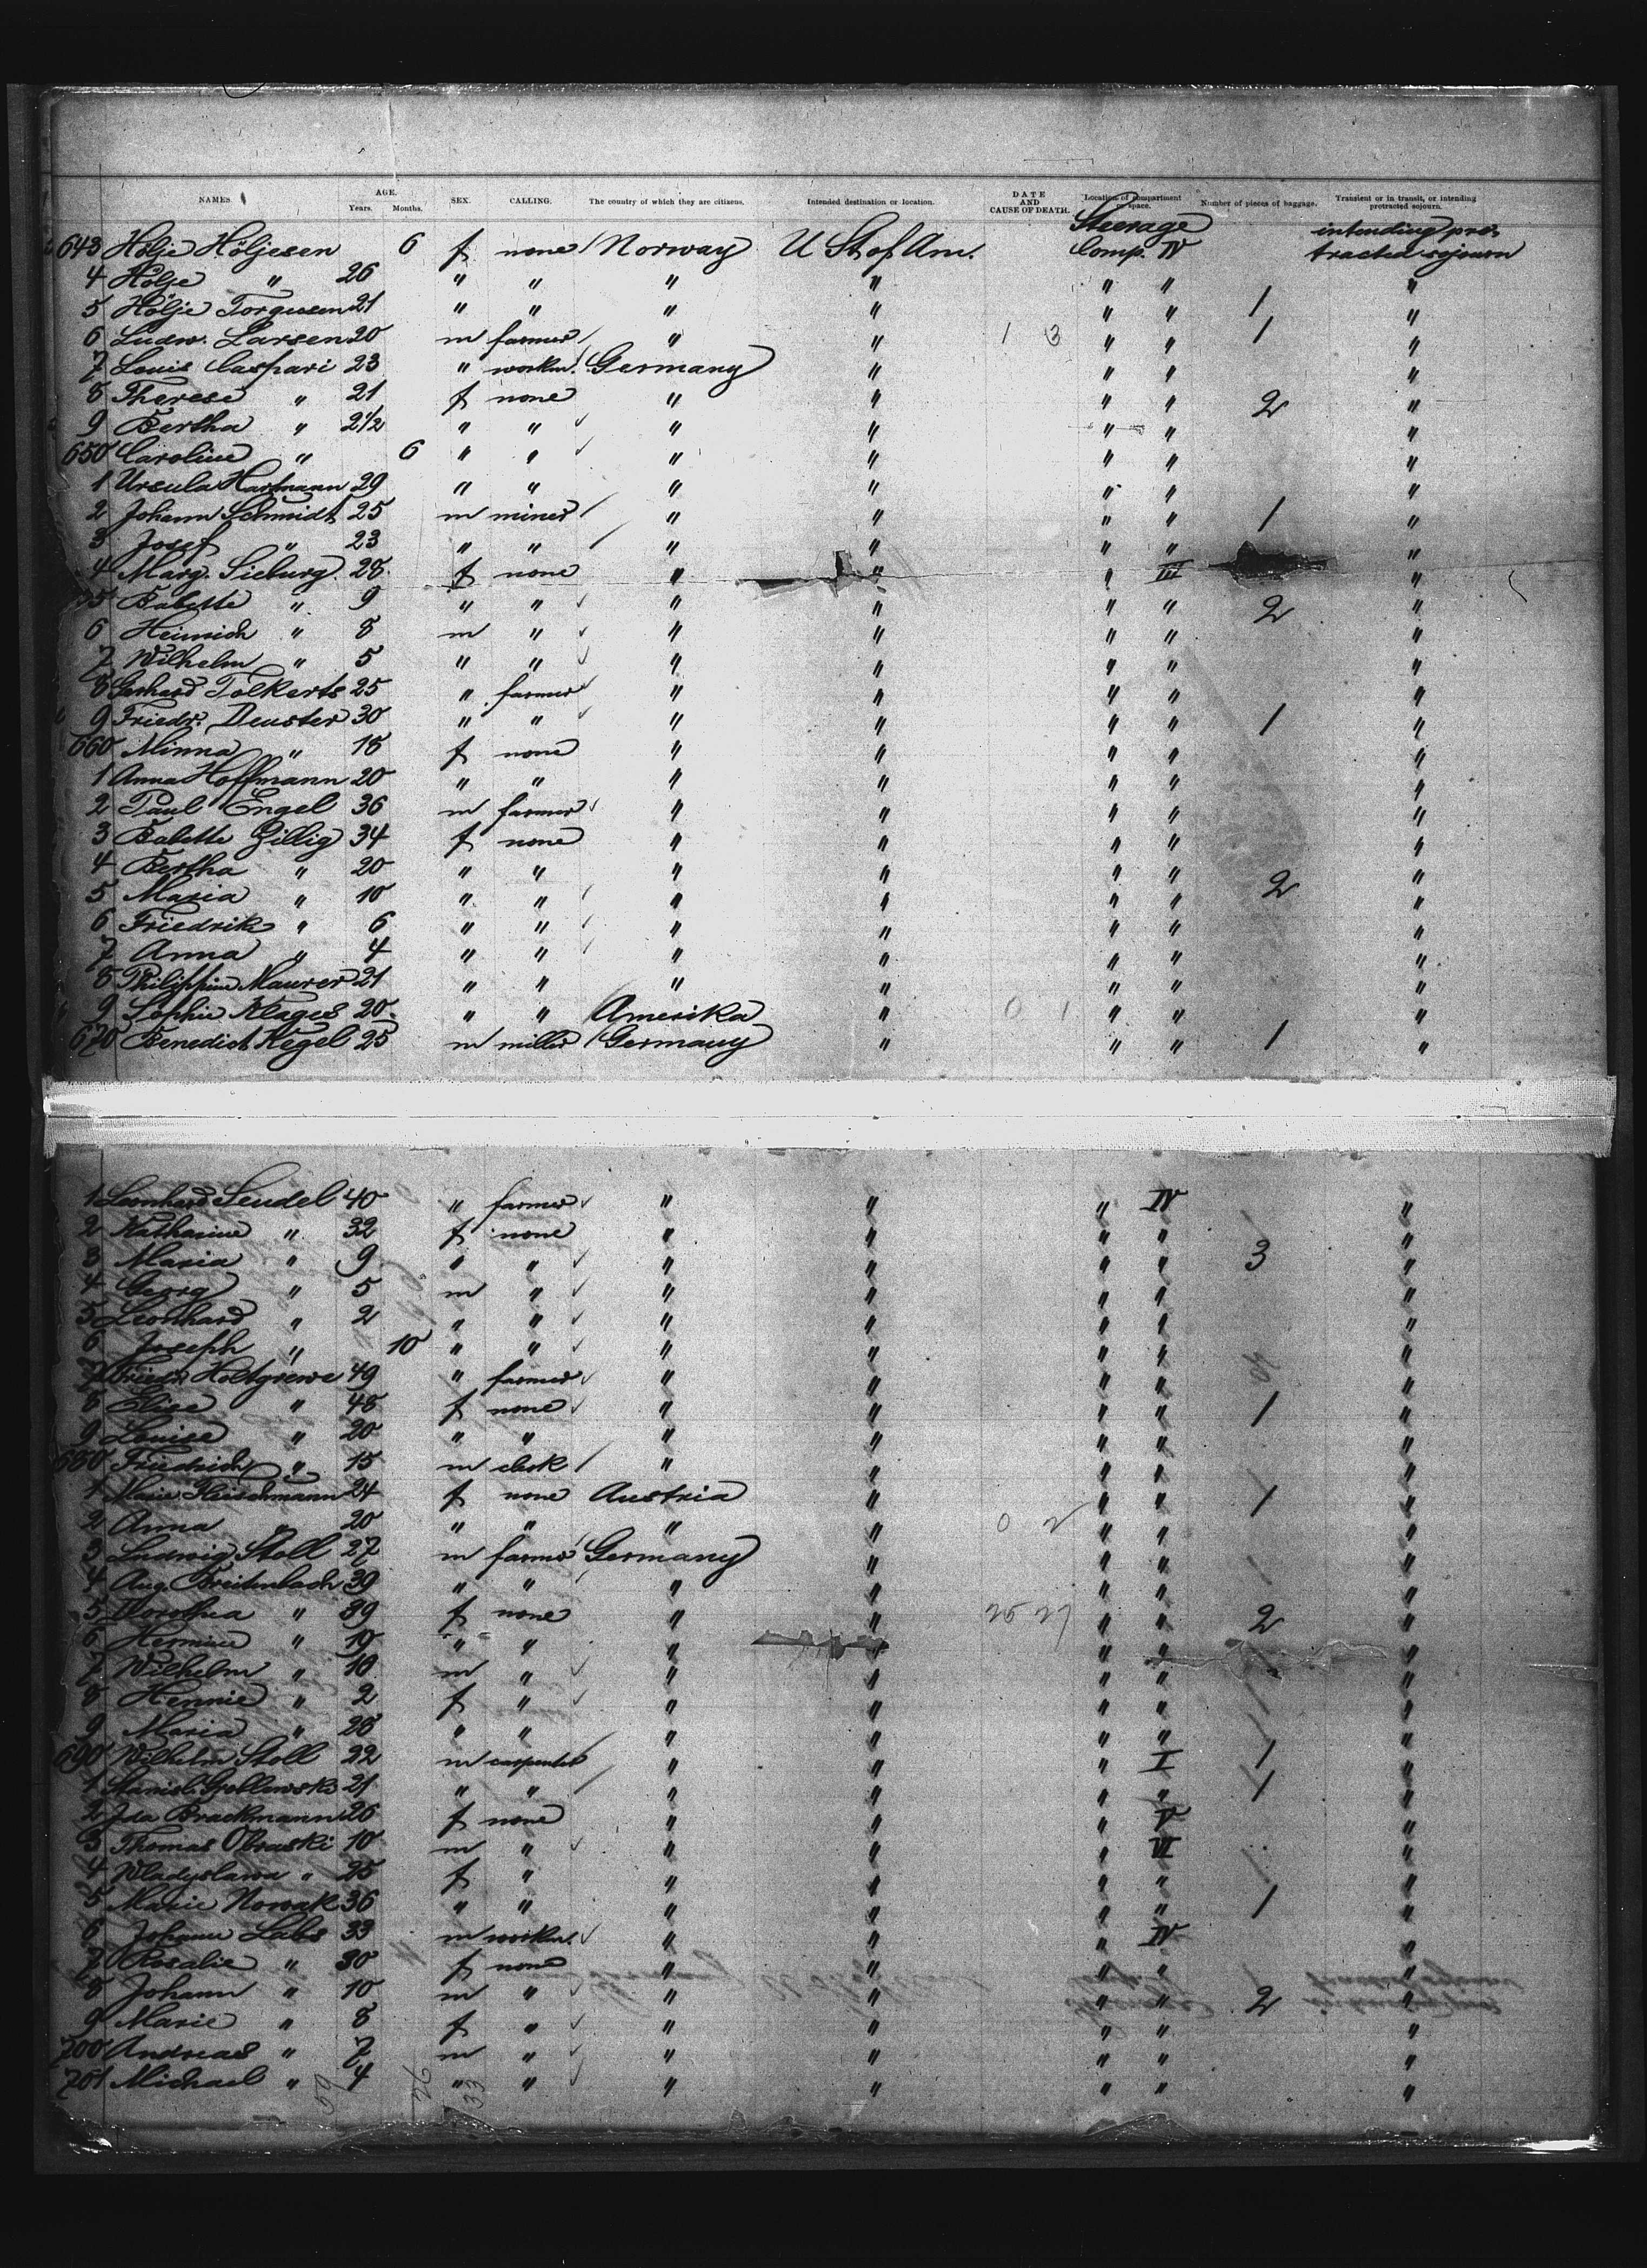 NAMES. AGE. Years. Months. SEX. CALLING. The country of which they are citizens. Intended destination or location. DATE AND CAUSE OF DEATH. Location of compartment or space. Number of pieces of baggage. Transient or in transit, or intending protracted sojourn.
Steerage intending pro-
643 Hölje Höljesen 6 f none Norway U St of Am. Comp. IV tracted sojourn
4 Hölje " 26 " " " " " " "
5 Hölje Torgusen 21 " " " " " " 1 "
6 Ludw. Larsen 20 m farmer " " 1 3 " " 1 "
7 Louis Caspari 23 " workm. Germany " " " "
8 Therese " 21 f none " " " " 2 "
9 Bertha " 2 1/2 " " " " " " "
650 Caroline " 6 " " " " " " "
1 Ursula Hartmann 29 " " " " " " "
2 Johann Schmidt 25 m miner " " " " 1 "
3 Josef " 23 " " " " " " "
4 Marg. Sieburg 28 f none " " " III "
5 Babette " 9 " " " " " " 2 "
6 Heinrich " 8 m " " " " " "
7 Wilhelm " 5 " " " " " " "
8 Gerhard Tolkerts 25 " farmer " " " " "
9 Friedr. Deuster 30 " " " " " " 1 "
660 Minna " 18 f none " " " " "
1 Anna Hoffmann 20 " " " " " " "
2 Paul Engel 36 m farmer " " " " "
3 Babette Gillig 34 f none " " " " "
4 Bertha " 20 " " " " " " 2 "
5 Maria " 10 " " " " " " "
6 Friedrik " 6 " " " " " " "
7 Anna " 4 " " " " " " "
8 Philippine Maurer 21 " " " " " " "
9 Sophie Klages 20 " " Amerika " 0 1 " " "
670 Benedict Kegel 25 m miller Germany " " " 1 "
1 Leonhard Seudel 40 " farmer " " " IV "
2 Katharine " 32 f none " " " " "
3 Maria " 9 " " " " " " 3 "
4 Georg " 5 m " " " " " "
5 Leonhard " 2 " " " " " " "
6 Joseph " 10 " " " " " " "
7 Friedr. Holtgrewe 49 " farmer " " " " "
8 Elise " 48 f none " " " " 1 "
9 Louise " 20 " " " " " " "
680 Friedrich " 15 m clerk " " " " "
1 Marie Fleischmann 24 f none Austria " " " 1 "
2 Anna " 20 " " " " 0 2 " " "
3 Ludwig Stoll 27 m farmer Germany " " " "
4 Aug. Breitenbach 39 " " " " " " "
5 Dorothea " 39 f none " " 25 27 " " 2 "
6 Hermine " 19 " " " " " " "
7 Wilhelm " 10 m " " " " " "
8 Hennie " 2 f " " " " " "
9 Maria " 28 " " " " " " "
690 Wilhelm Stoll 22 m carpenter " " " I 1 "
1 Stanisl. Grollewski 21 " " " " " " 1 "
2 Ida Brackmann 26 f none " " " V "
3 Thomas Obraski 10 m " " " " VI "
4 Wladyslawa " 25 f " " " " " "
5 Marie Nowak 36 " " " " " " 1 "
6 Johann Labs 33 m workm. " " " IV "
7 Rosalie " 30 f none " " " " "
8 Johann " 10 m " " " " " 2 "
9 Marie " 8 f " " " " " "
700 Andreas " 7 m " " " " " "
701 Michael " 4 " " " " " " "
59 26 33